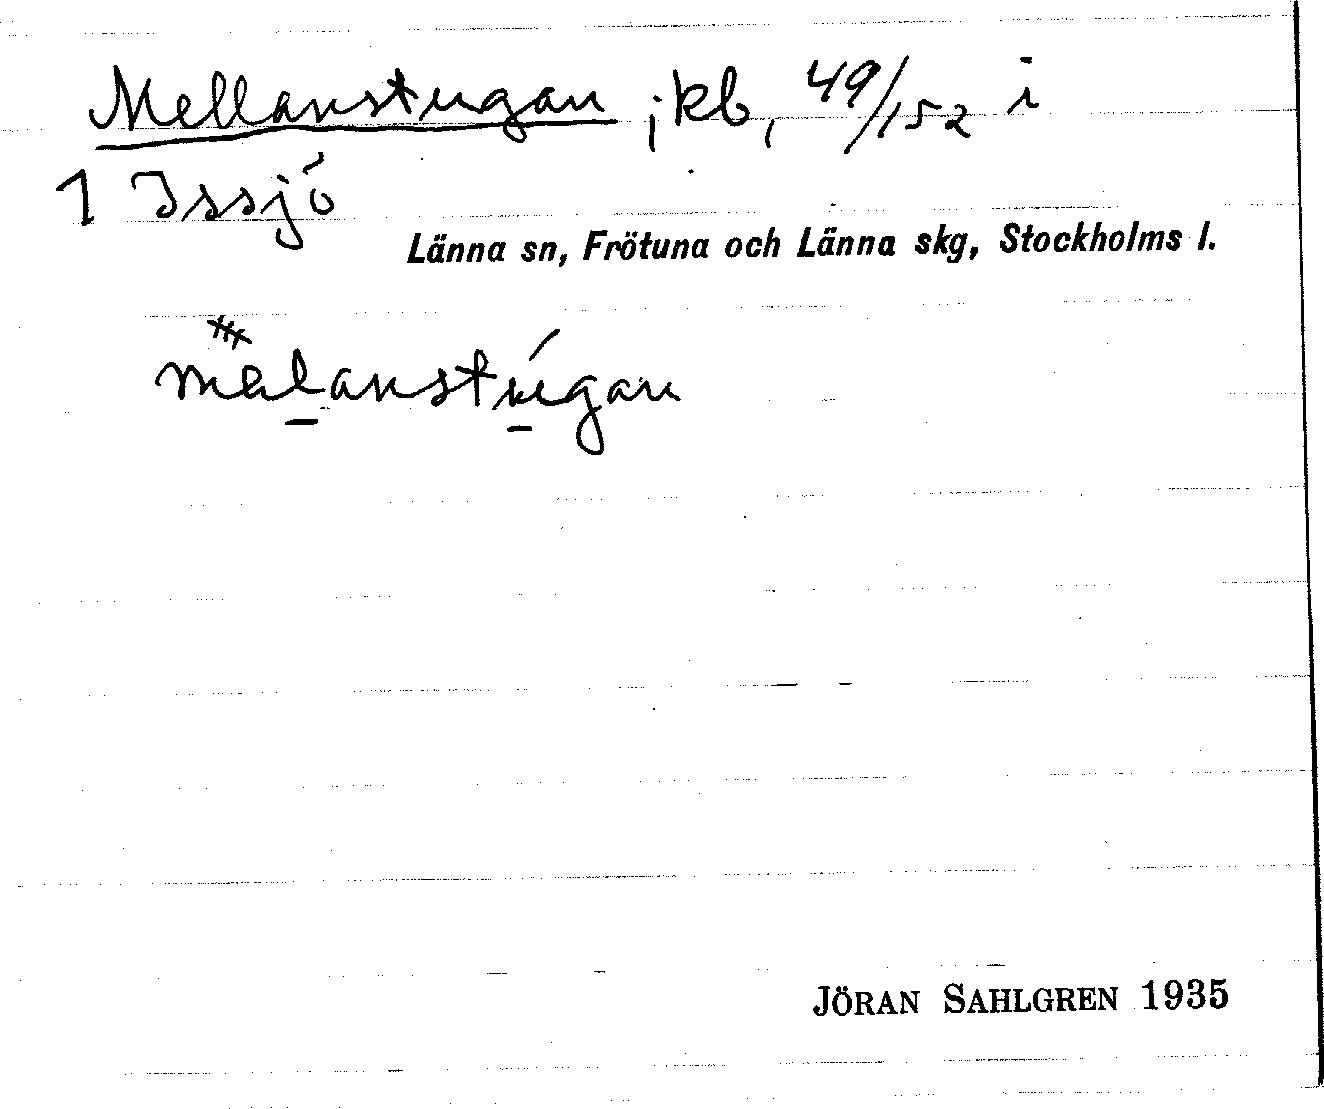 Mellanstugan ; kb, 49/152 i
1 Issjö
Länna sn, Frötuna och Länna skg, Stockholms l.
mälanstúgan
JÖRAN SAHLGREN 1935